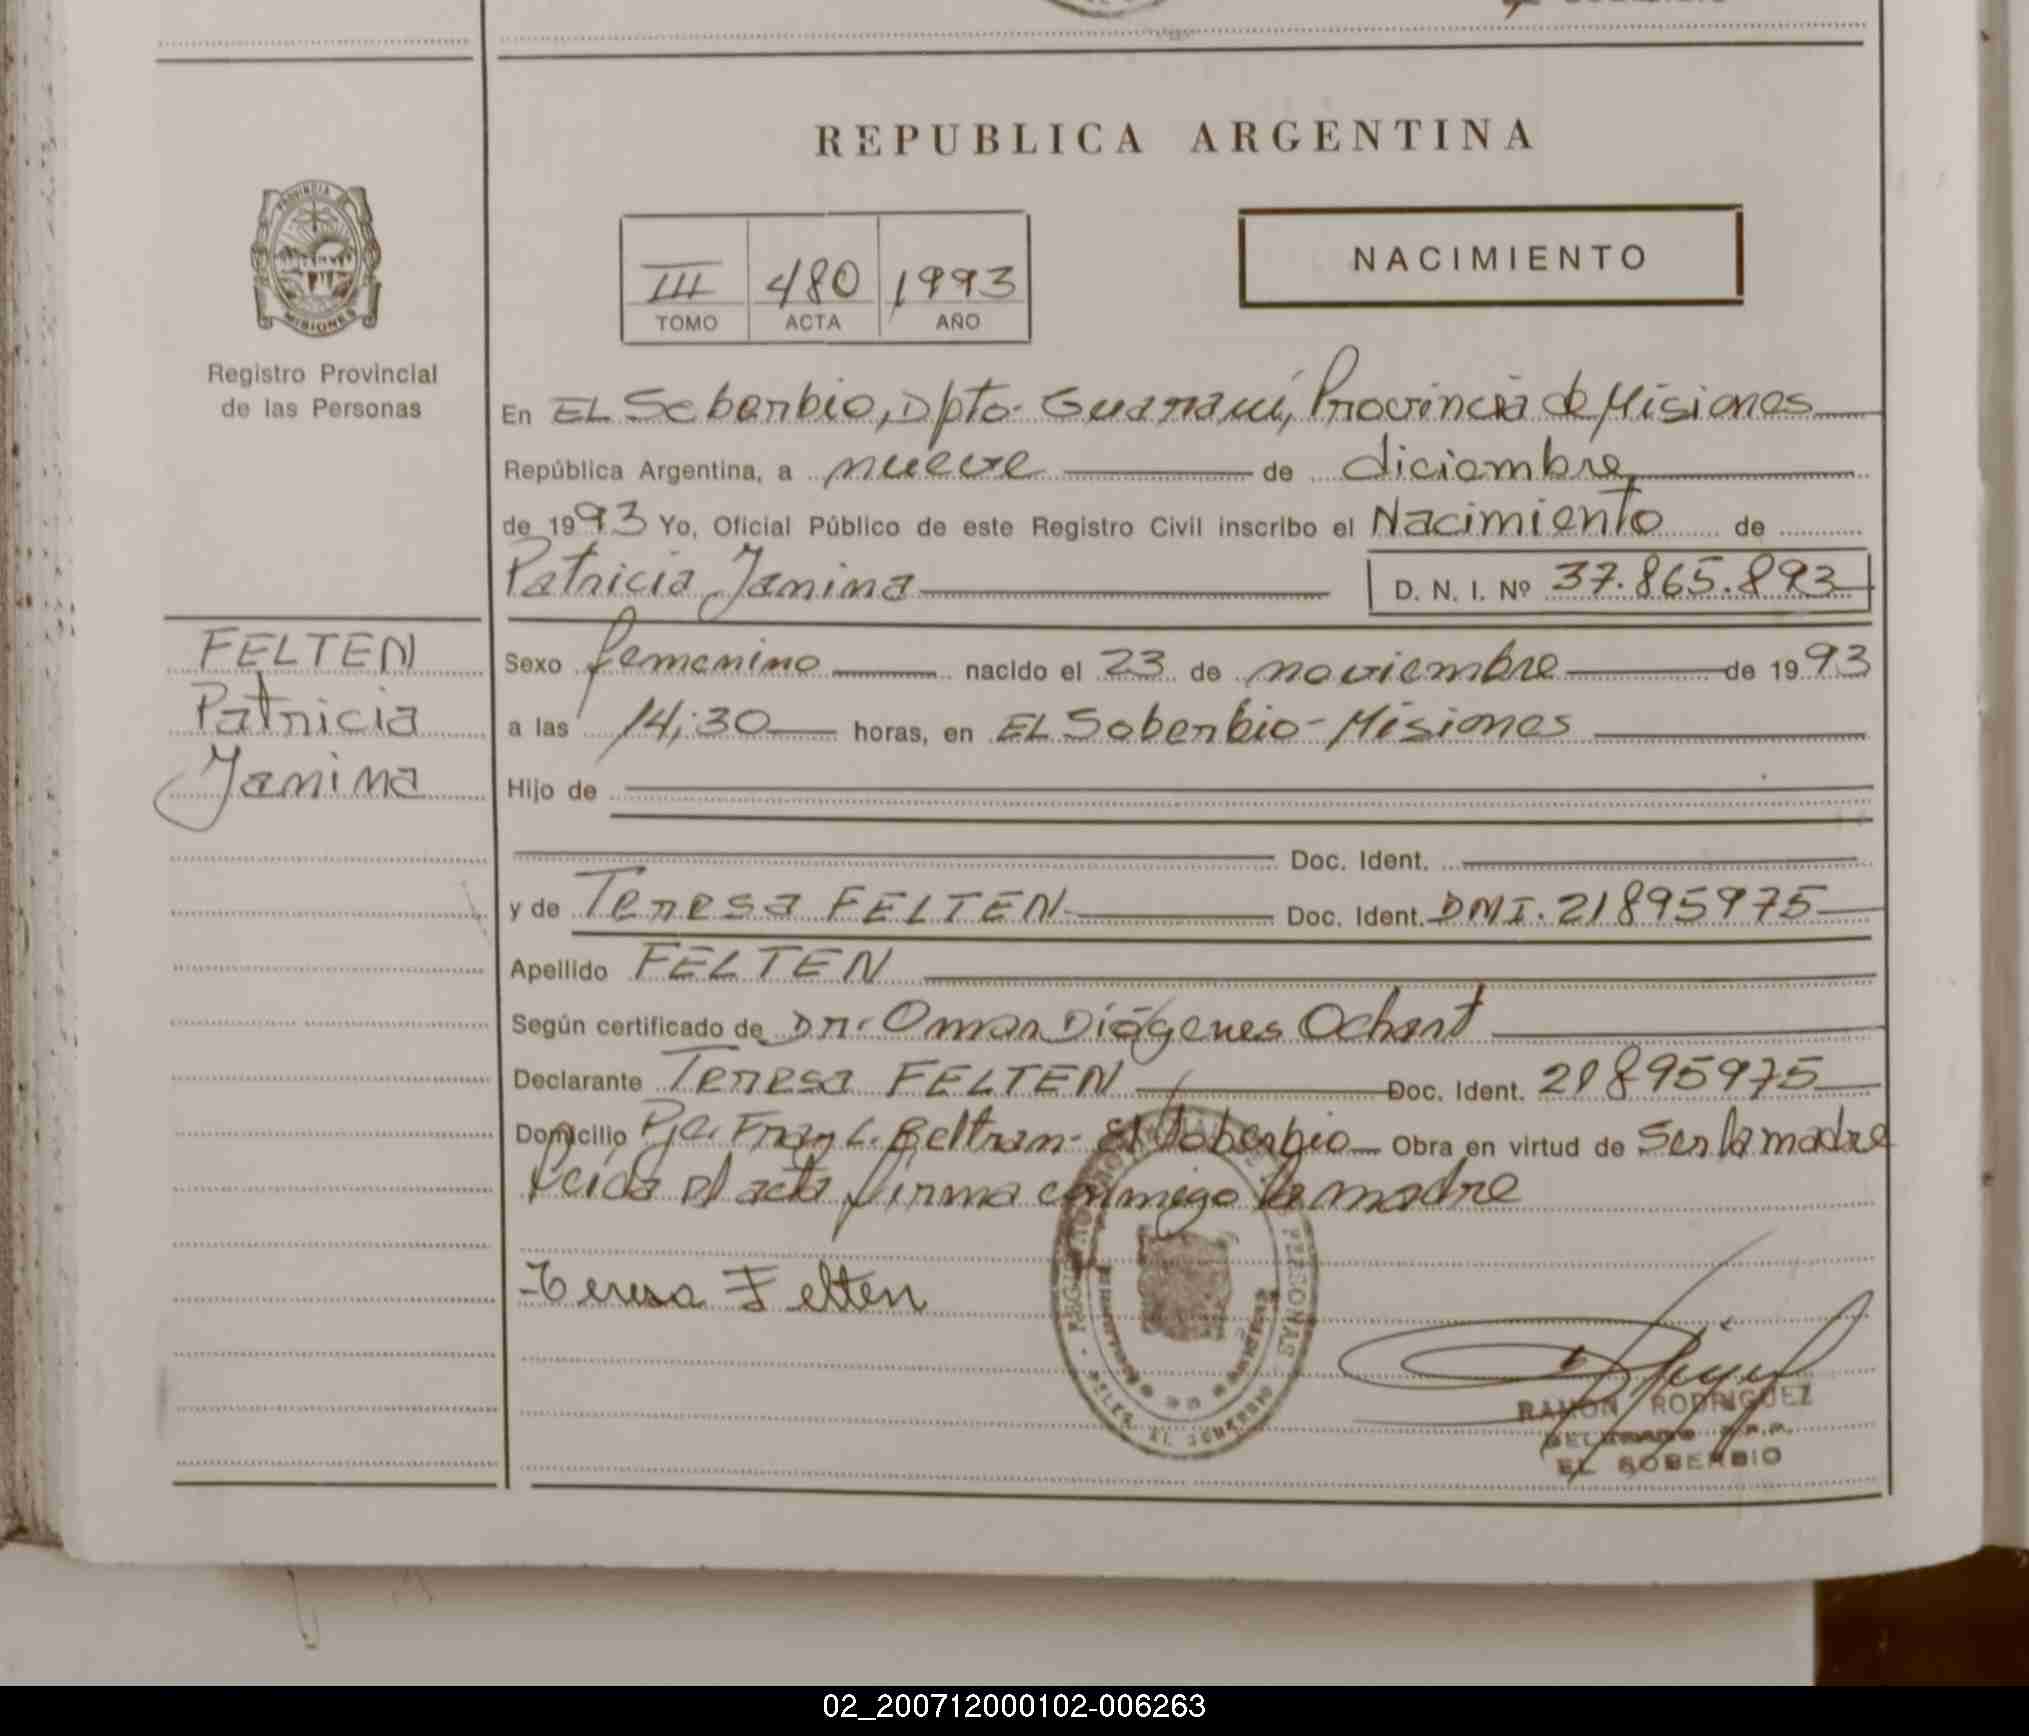 REPUBLICA ARGENTINA
PROVINCIA DE
MISIONES
Registro Provincial
de las Personas
III 480 1993
TOMO ACTA AÑO
NACIMIENTO
En EL Soberbio, Dpto. Guaraní, Provincia de Misiones
República Argentina, a nueve de diciembre
de 1993 Yo, Oficial Público de este Registro Civil inscribo el Nacimiento de
Patricia Janina D. N. I. Nº 37.865.893
FELTEN
Patricia
Janina
Sexo femenino nacido el 23 de noviembre de 1993
a las 14;30 horas, en EL Soberbio - Misiones
Hijo de
Doc. Ident.
y de Teresa FELTEN Doc. Ident. DNI. 21895975
Apellido FELTEN
Según certificado de Dr. Omar Diógenes Ochart
Declarante Teresa FELTEN Doc. Ident. 21895975
Domicilio Pje. Fray L. Beltran - El Soberbio Obra en virtud de Ser la madre
Leída el acta firma conmigo la madre
Teresa Felten
PERSONAS
RAMON RODRIGUEZ
EL SOBERBIO
02_200712000102-006263